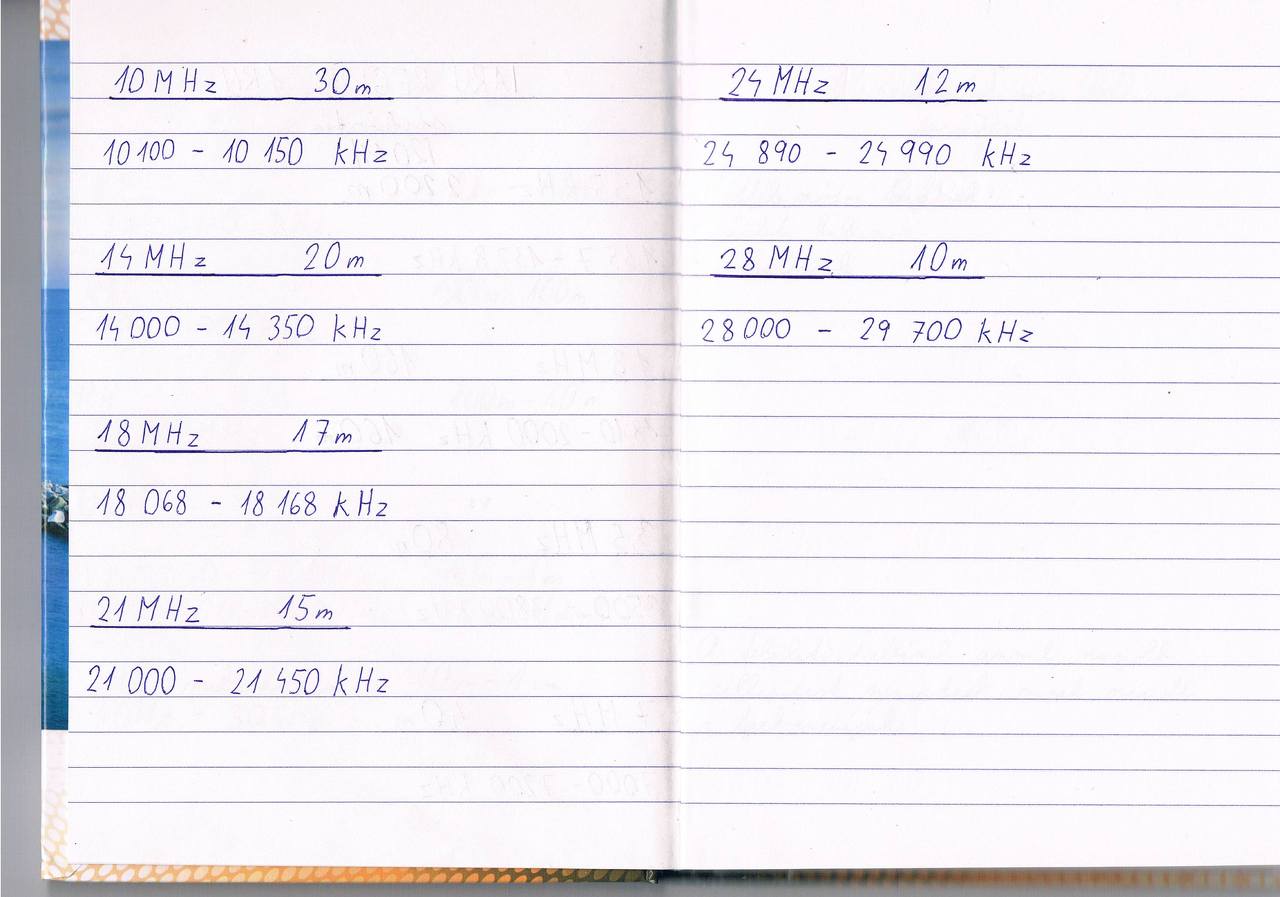 10 MHz 30m
10 100 - 10 150 kHz
14 MHz 20m
14 000 - 14 350 kHz
18 MHz 17m
18 068 - 18 168 kHz
21 MHz 15m
21 000 - 21 450 kHz
24 MHz 12m
24 890 - 24 990 kHz
28 MHz 10m
28 000 - 29 700 kHz